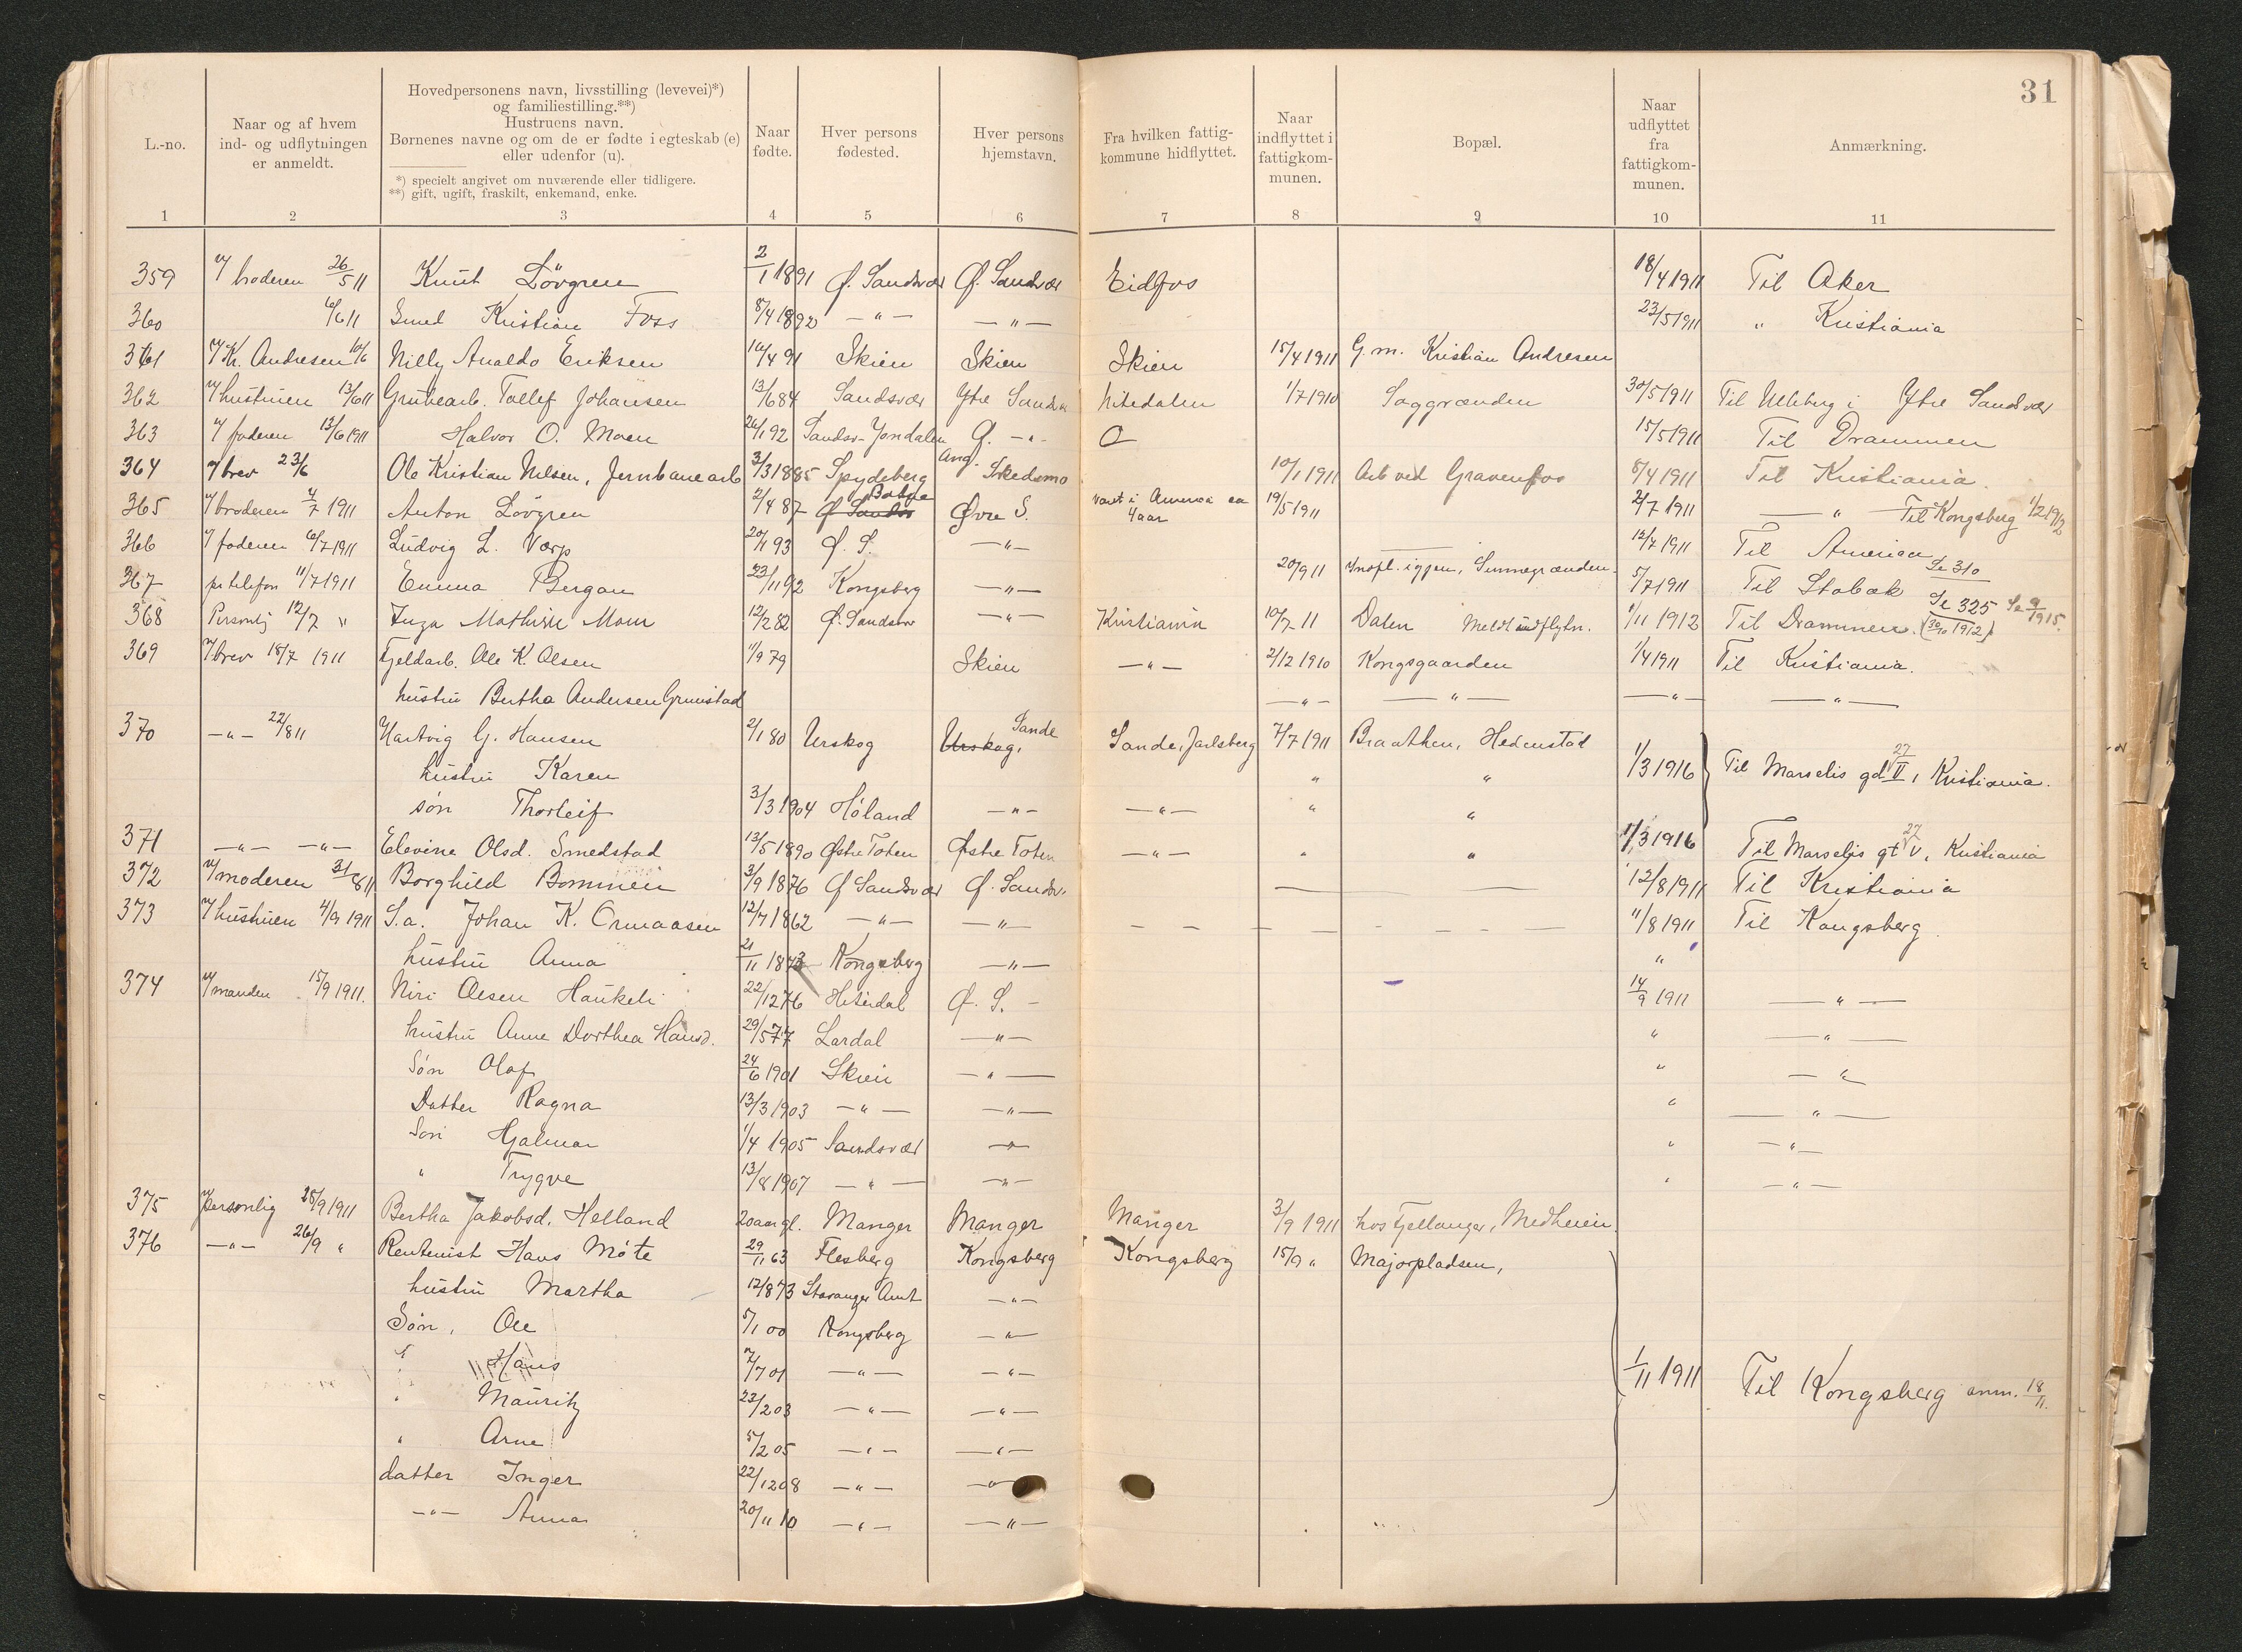 31
L.-no.
Naar og af hvem ind- og udflytningen er anmeldt.
Hovedpersonens navn, livsstilling (levevei)*) og familiestilling.**) Hustruens navn. Børnenes navne og om de er fødte i egteskab (e) eller udenfor (u).
*) specielt angivet om nuværende eller tidligere.
**) gift, ugift, fraskilt, enkemand, enke.
Naar fødte.
Hver persons fødested.
Hver persons hjemstavn.
Fra hvilken fattigkommune hidflyttet.
Naar indflyttet i fattigkommunen.
Bopæl.
Naar udflyttet fra fattigkommunen.
Anmærkning.
1 2 3 4 5 6 7 8 9 10 11
359 v/ broderen 26/5 11 Knut Lövgren 2/1 1891 Ø. Sandsvær Ø. Sandsvær Eidfos 18/4 1911 Til Aker
360 6/6 11 Smed Kristian Foss 8/4 1892 — " — — " — 23/5 1911 " Kristiania
361 v/ Kr. Andresen 10/6 Nilly Analdo Eriksen 10/4 91 Skien Skien Skien 15/4 1911 G.m. Kristian Andresen
362 v/ hustruen 13/6 11 Grubearb. Tollef Johansen 13/6 84 Sandsvær Ytre Sandsvær Nitedalen 1/7 1910 Saggrænden 30/5 1911 Til Ulleberg i Ytre Sandsvær
363 v/ faderen 13/6 1911 Halvor O. Moen 26/1 92 Sandsv-Jondalen Ø. - " - O 15/5 1911 Til Drammen
364 v/ brev 23/6 Ole Kristian Nilsen, Jernbanearb 3/3 1885 Spydeberg Ang. Skedsmo 10/1 1911 Arb ved Gravenfos 8/4 1911 Til Kristiania.
365 v/ broderen 4/7 1911 Anton Lövgren 2/4 87 Ø Sandsv Øvre S. vært i America ca 4 aar 19/5 1911 2/7 1911 — " — Til Kongsberg 1/2 1912
366 v/ faderen 6/7 1911 Ludvig L. Værp 20/11 93 Ø. S. — " — 12/7 1911 Til America
367 pr telefon 11/7 1911 Emma Bergan 23/11 92 Kongsberg — " — 20/9 11 Indfl. igjen, Simmegrænden. 5/7 1911 Til Stabæk Se 310
368 Personlig 12/7 " Inga Mathisen Moen 12/2 82 Ø. Sandsv — " — Kristiania 10/7 - 11 Dalen Meldt indflytn. 1/11 1912 Til Drammen. (30/10 1912) Se 325 Se 9/1915.
369 v/ brev 18/7 1911 Fjeldarb. Ole K. Olsen 11/9 79 Skien — " — 2/12 1910 Kongsgaarden 1/4 1911 Til Kristiania.
hustru Bertha Andersen Grimstad — " — — " — — " — — " —
370 — " — 22/8 11 Hartvig G. Hansen 2/1 80 Urskog Urskog, Sande Sande, Jarlsberg 7/7 1911 Braathen, Hedenstad
hustru Karen " " 1/3 1916 Til Marselis gd 27/V, Kristiania.
søn Thorleif 3/3 1904 Høland — " — — " — " "
371 — " — — " — Elevine Olsd. Smedstad 13/5 1890 Østre Toten Østre Toten — " — " " 1/3 1916 Til Marselis gt 27/V, Kristiania
372 v/ moderen 31/8 11 Borghild Bommen 3/9 1876 Ø Sandsvær Ø. Sandsv. 12/8 1911 Til Kristiania
373 v/ hustruen 4/9 1911 S.a. Johan K. Ormaasen 12/7 1862 — " — — " — 11/8 1911 Til Kongsberg.
hustru Anna 21/11 1873 Kongsberg — " — "
374 v/ manden 15/9 1911. Niri Olesen Haukeli 22/12 76 Hiterdal Ø. S. - 14/9 1911 — " —
hustru Anne Dorthea Hansd. 29/5 77 Lardal — " — " — " —
Søn Olaf 24/6 1901 Skien — " — " — " —
Datter Ragna 13/3 1903 — " — — " — " — " —
Søn Hjalmar 1/4 1905 Sandsvær — " — " — " —
" Trygve 13/8 1907 — " — — " — " — " —
375 v/ personlig 25/9 1911 Bertha Jakobsd. Helland 20 aar gl. Manger Manger Manger 3/9 1911 hos Fjellanger, Medheien.
376 — " — 26/9 " Rentenist Hans Möte 29/11 63 Flesberg Kongsberg Kongsberg 15/9 " Majorpladsen,
hustru Martha 12/8 73 Stavanger Amt — " —
Søn, Ole 5/1 00 Kongsberg — " —
" Hans 7/7 01 — " — — " — 1/11 1911 Til Kongsberg anm. 18/11.
" Mauritz 23/2 03 — " — — " —
" Arne 5/2 05 — " — — " —
datter Inger 22/12 08 — " — — " —
— " — Anna 20/11 10 — " — — " —